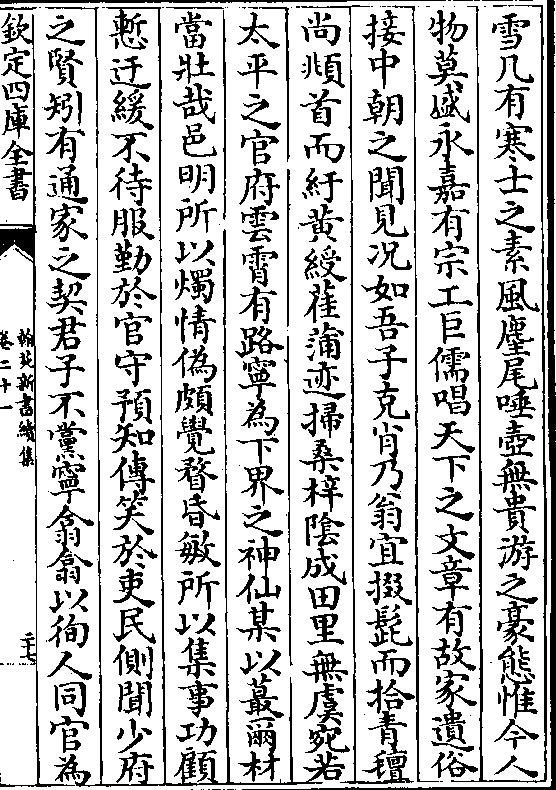 雪几有寒士之素風麈尾唾壺無貴游之豪態惟今人
物莫盛永嘉有宗工巨儒唱天下之文章有故家遺俗
接中朝之聞見况如吾子克肖乃翁宜掇髭而拾青氊
尚頫首而紆黄綬萑蒲迹掃桑梓陰成田里無虞宛若
太平之官府雲霄有路寧為下界之神仙某以蕞爾材
當壯哉邑明所以燭情偽頗覺瞀昏敏所以集事功顧
慙迂緩不待服勤於官守預知傳笑於吏民側聞少府
之賢矧有通家之契君子不黨寧翕翕以徇人同官為
欽定四庫全書
翰苑新書續集
卷二十一
二十七